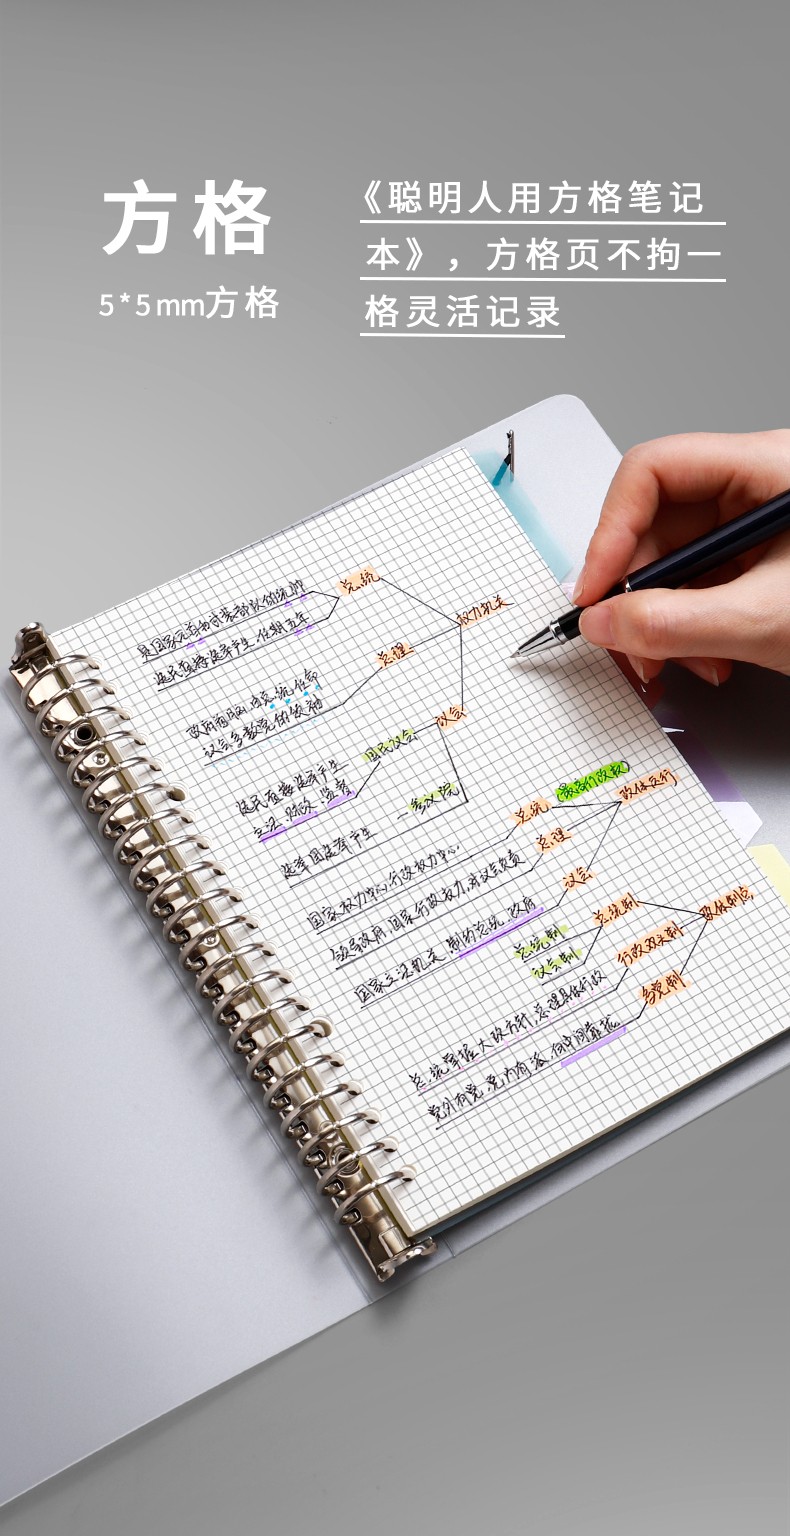 方格
5*5mm方格
《聪明人用方格笔记
本》，方格页不拘一
格灵活记录
总统
是国家元首和武装部队的统帅
选民直接选举产生,任期五年
权力机关
总理
政府首脑,由总统任命
议会多数党的领袖
议会
国民议会
选民直接选举产生
立法、财政、监督
参议院
选举团选举产生
(最高行政权)
政体运行
总统
国家权力中心,行政权力中心.
总理
领导政府,国家行政权力,对议会负责
议会
国家立法机关,制约总统、政府
政体制点
总统制
总统制
议会制
行政双头制
总统掌握大政方针,总理具体行政
多党制
党外有党,党内有派,但中间靠拢